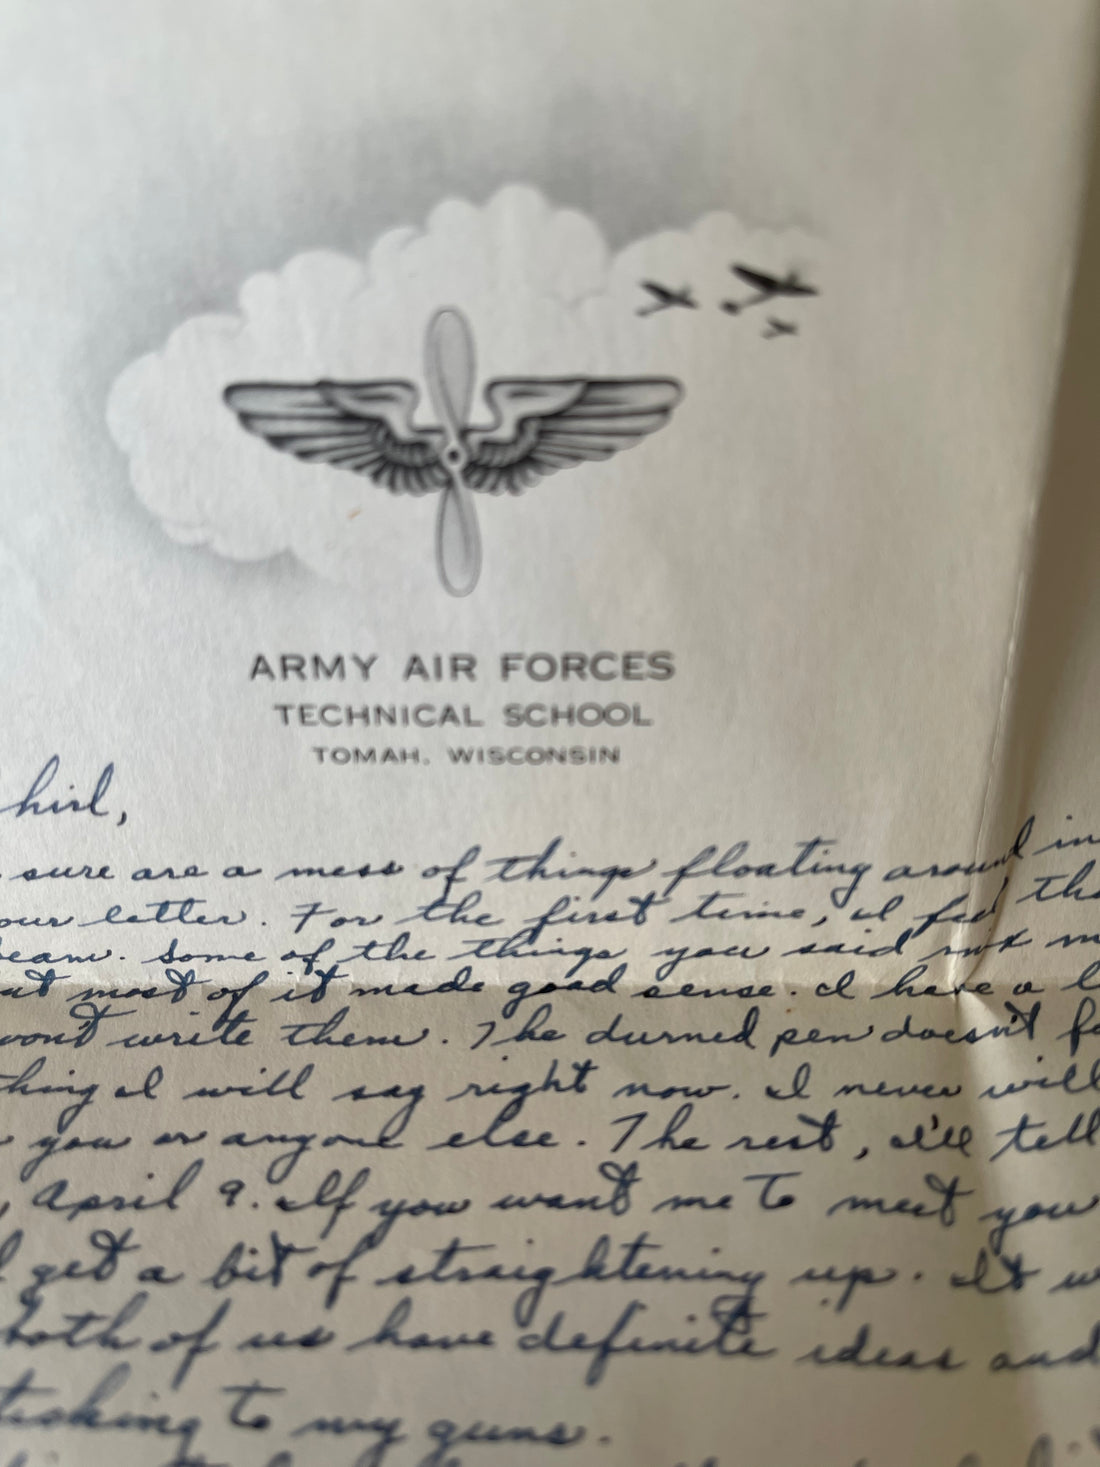 ARMY AIR FORCES
TECHNICAL SCHOOL
TOMAH, WISCONSIN
sure are a mess of things floating around in
our letter. For the first time, I feel tha
eam. Some of the things you said
ut most of it made good sense. I have a l
won't write them. The durned pen doesn't f
thing I will say right now. I never will
you or anyone else. The rest, I'll tell
, April 9. If you want me to meet you
get a bit of straightening up. It w
both of us have definite ideas and
ticking to my guns.